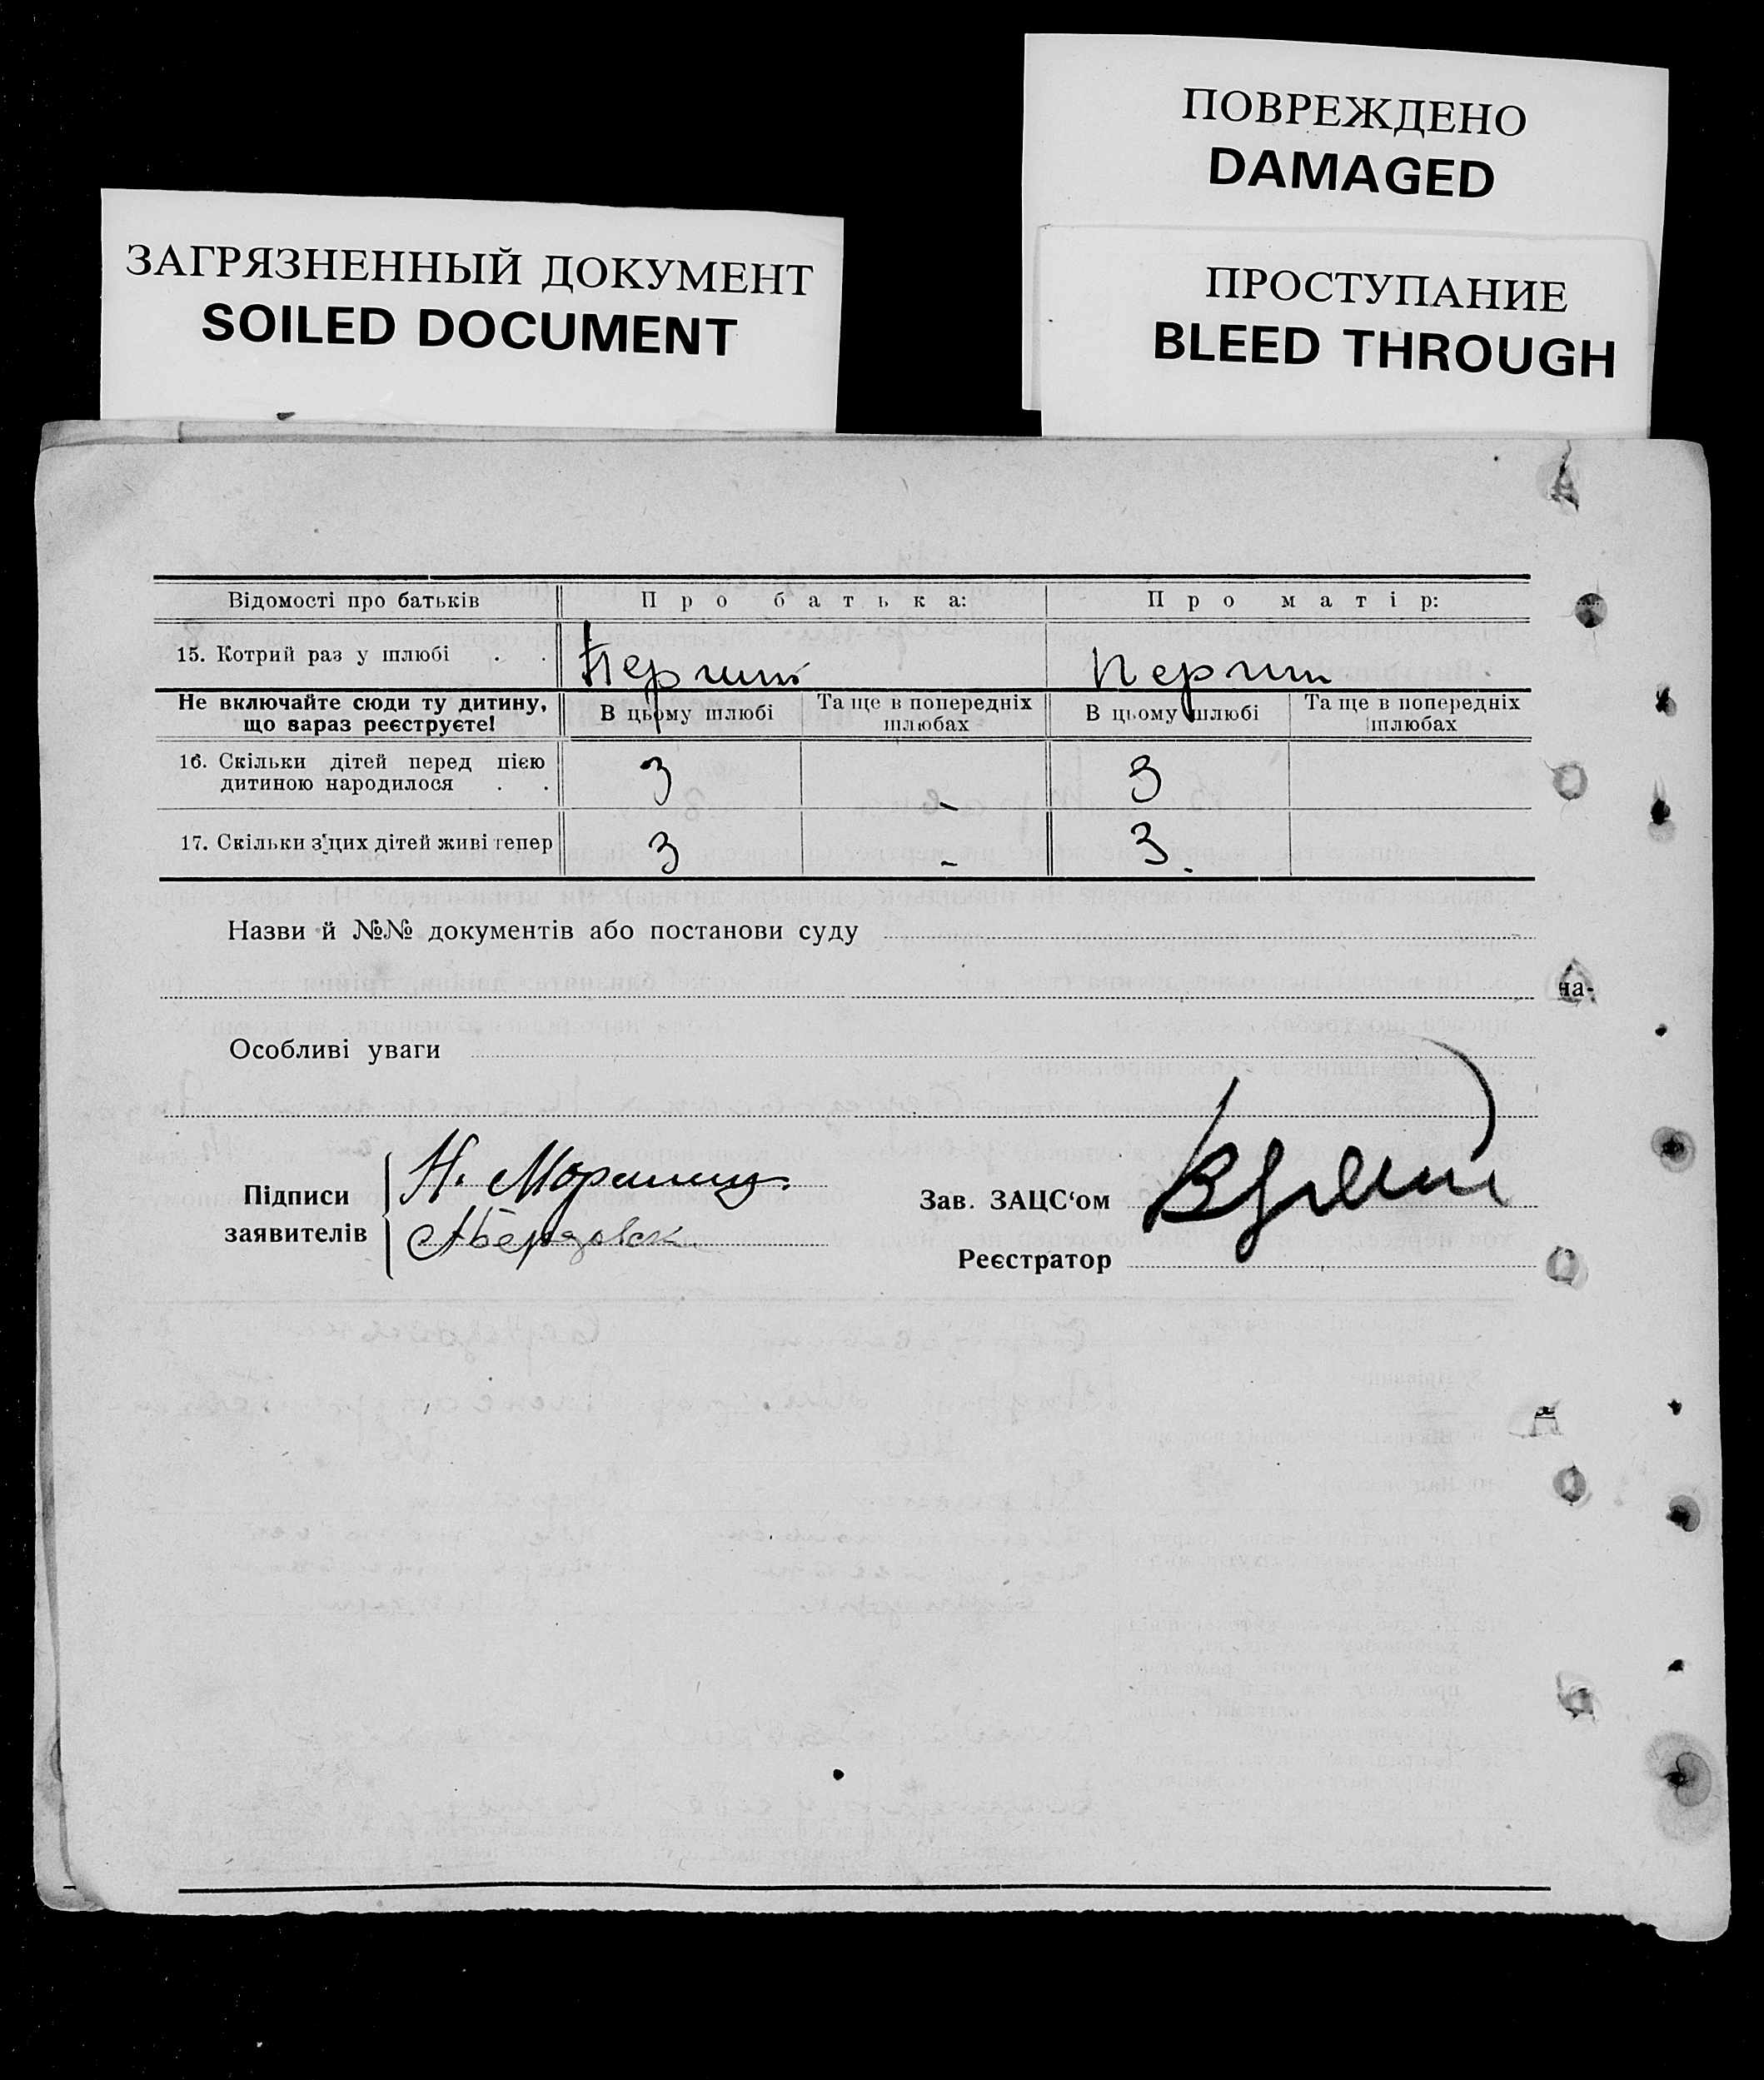 ПОВРЕЖДЕНО
DAMAGED
ЗАГРЯЗНЕННЫЙ ДОКУМЕНТ
SOILED DOCUMENT
ПРОСТУПАНИЕ
BLEED THROUGH
Відомості про батьків Про батька: Про матір:
15. Котрий раз у шлюбі . . Перший Перший
Не включайте сюди ту дитину, що вараз реєструєте! В цьому шлюбі Та ще в попередніх шлюбах В цьому шлюбі Та ще в попередніх шлюбах
16. Скільки дітей перед цією дитиною народилося . . 3 - 3
17. Скільки з цих дітей живі тепер 3 - 3
Назви й №№ документів або постанови суду
на-
Особливі уваги
Підписи заявителів
Н.
Зав. ЗАЦС‘ом
Реєстратор